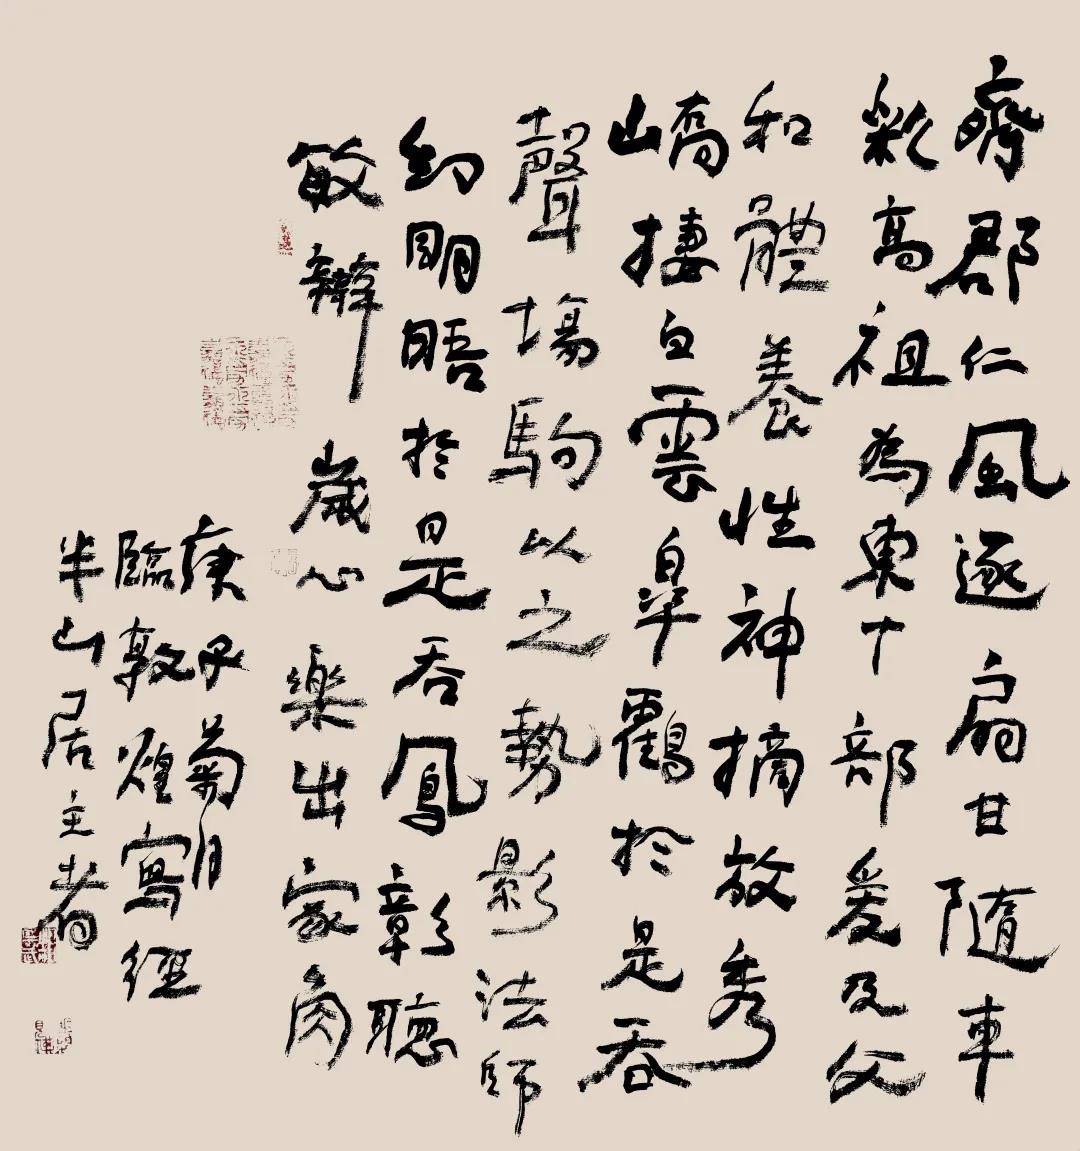 齊郡仁風逐扇甘隨車
彩高祖為東十部爰及父
和體養性神摘放秀
山嶠捿白雲皐鸖扵是吞
聲塲駒以之勢影法師
幼明晤扵是吞鳳彰聴
敏辯歲心樂出家肉
庚子菊月
臨敦煌寫經
半山居主者